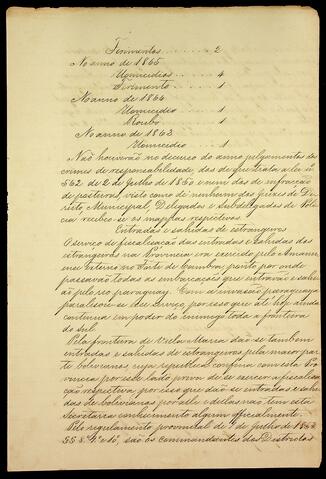 Ferimentos . . . . . . . . 2
No anno de 1865
Homicidios . . . . . . . 4
Ferimento . . . . . . . 1
No anno de 1864
Homicidio . . . . . . . 1
Roubo . . . . . . . 1
No anno de 1863
Homicidio . . . . . . . 1
Não houverão no decurso do anno julgamentos de
crimes de responsabilidade, dos de que trata a lei nº
562 de 2 de Julho de 1850 e nem dos de infracção
de posturas, visto como de nenhum dos juizes de Di-
reito, Municipal, Delegados e Subdelegados de Poli-
cia recebeo-se os mappas respectivos.
Entradas e sahidas de estrangeiros
O serviço de fiscalisação das entradas e sahidas dos
estrangeiros na Provincia era exercido pelo Amanu-
ense externo no Forte de Coimbra, ponto por onde
passavão todas as embarcações que entravão e sahi-
ão pelo rio paraguay. Com a invasão paraguaya
paralisou-se esse serviço, por isso que até hoje ainda
continua em poder do enemigo toda a fronteira
do Sul.
Pela fronteira de Villa Maria dão-se tambem
entradas e sahidas de estrangeiros pela maior par-
te bolivianos cuja republica confina com esta Pro-
vincia por esse lado
respectiva por isso que dão-se entradas e sahi-
das de bolivianos por alli e dellas não tem esta
Secretaria conhecimento algum officialmente.
Pelo regulamento provincial de de Julho de
são os commandantes dos Districtos